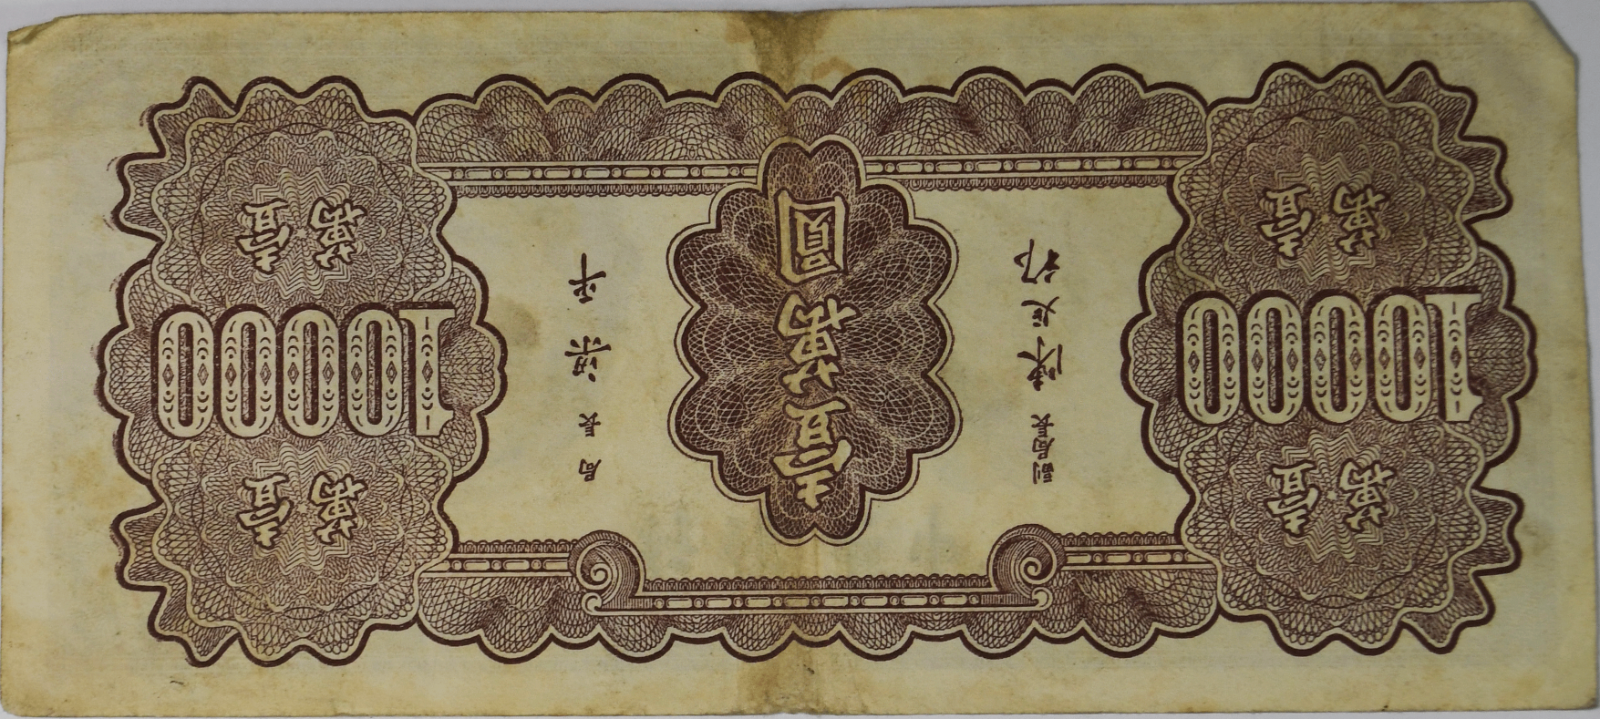 壹萬
壹萬
10000
10000
壹萬
壹萬
壹萬圓
局長 梁平
副局長 陳